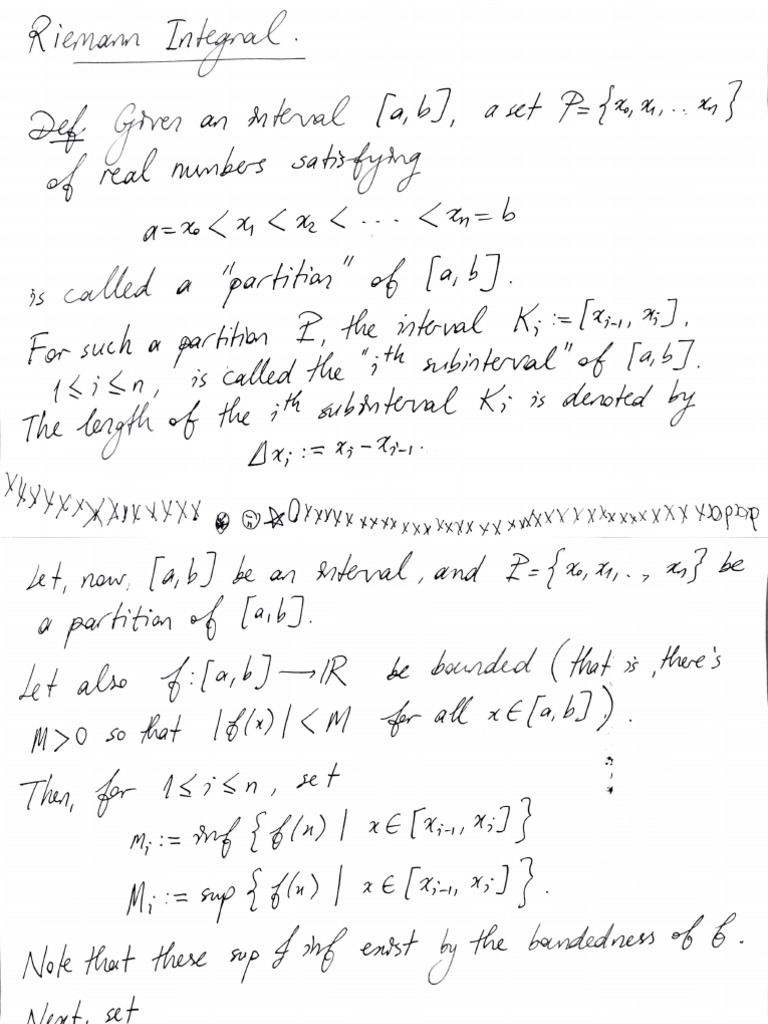 Riemann Integral.
Def. Given an interval [a,b], a set P={x₀,x₁,..xₙ}
of real numbers satisfying
a=x₀<x₁<x₂<...<xₙ=b
is called a "partition" of [a,b].
For such a partition P, the interval Kᵢ:=[xᵢ₋₁, xᵢ],
1≤i≤n, is called the "iᵗʰ subinterval" of [a,b].
The length of the iᵗʰ subinterval Kᵢ is denoted by
Δxᵢ := xᵢ-xᵢ₋₁.
Let, now, [a,b] be an interval, and P={x₀,x₁,.., xₙ} be
a partition of [a,b].
Let also f:[a,b]→ℝ be bounded (that is, there's
M>0 so that |f(x)|<M for all x∈[a,b]).
Then, for 1≤i≤n, set
mᵢ:= inf {f(x) | x∈[xᵢ₋₁, xᵢ]}
Mᵢ:= sup {f(x) | x∈[xᵢ₋₁, xᵢ]}.
Note that these sup & inf exist by the boundedness of f.
Next, set